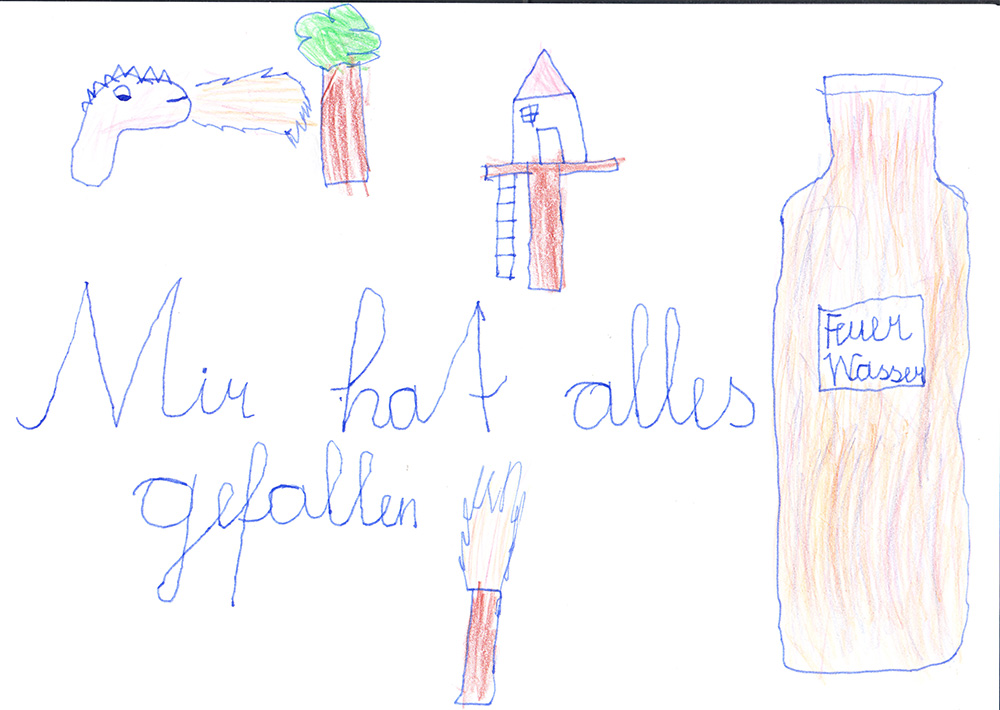 Mir hat alles
gefallen
Feuer
Wasser